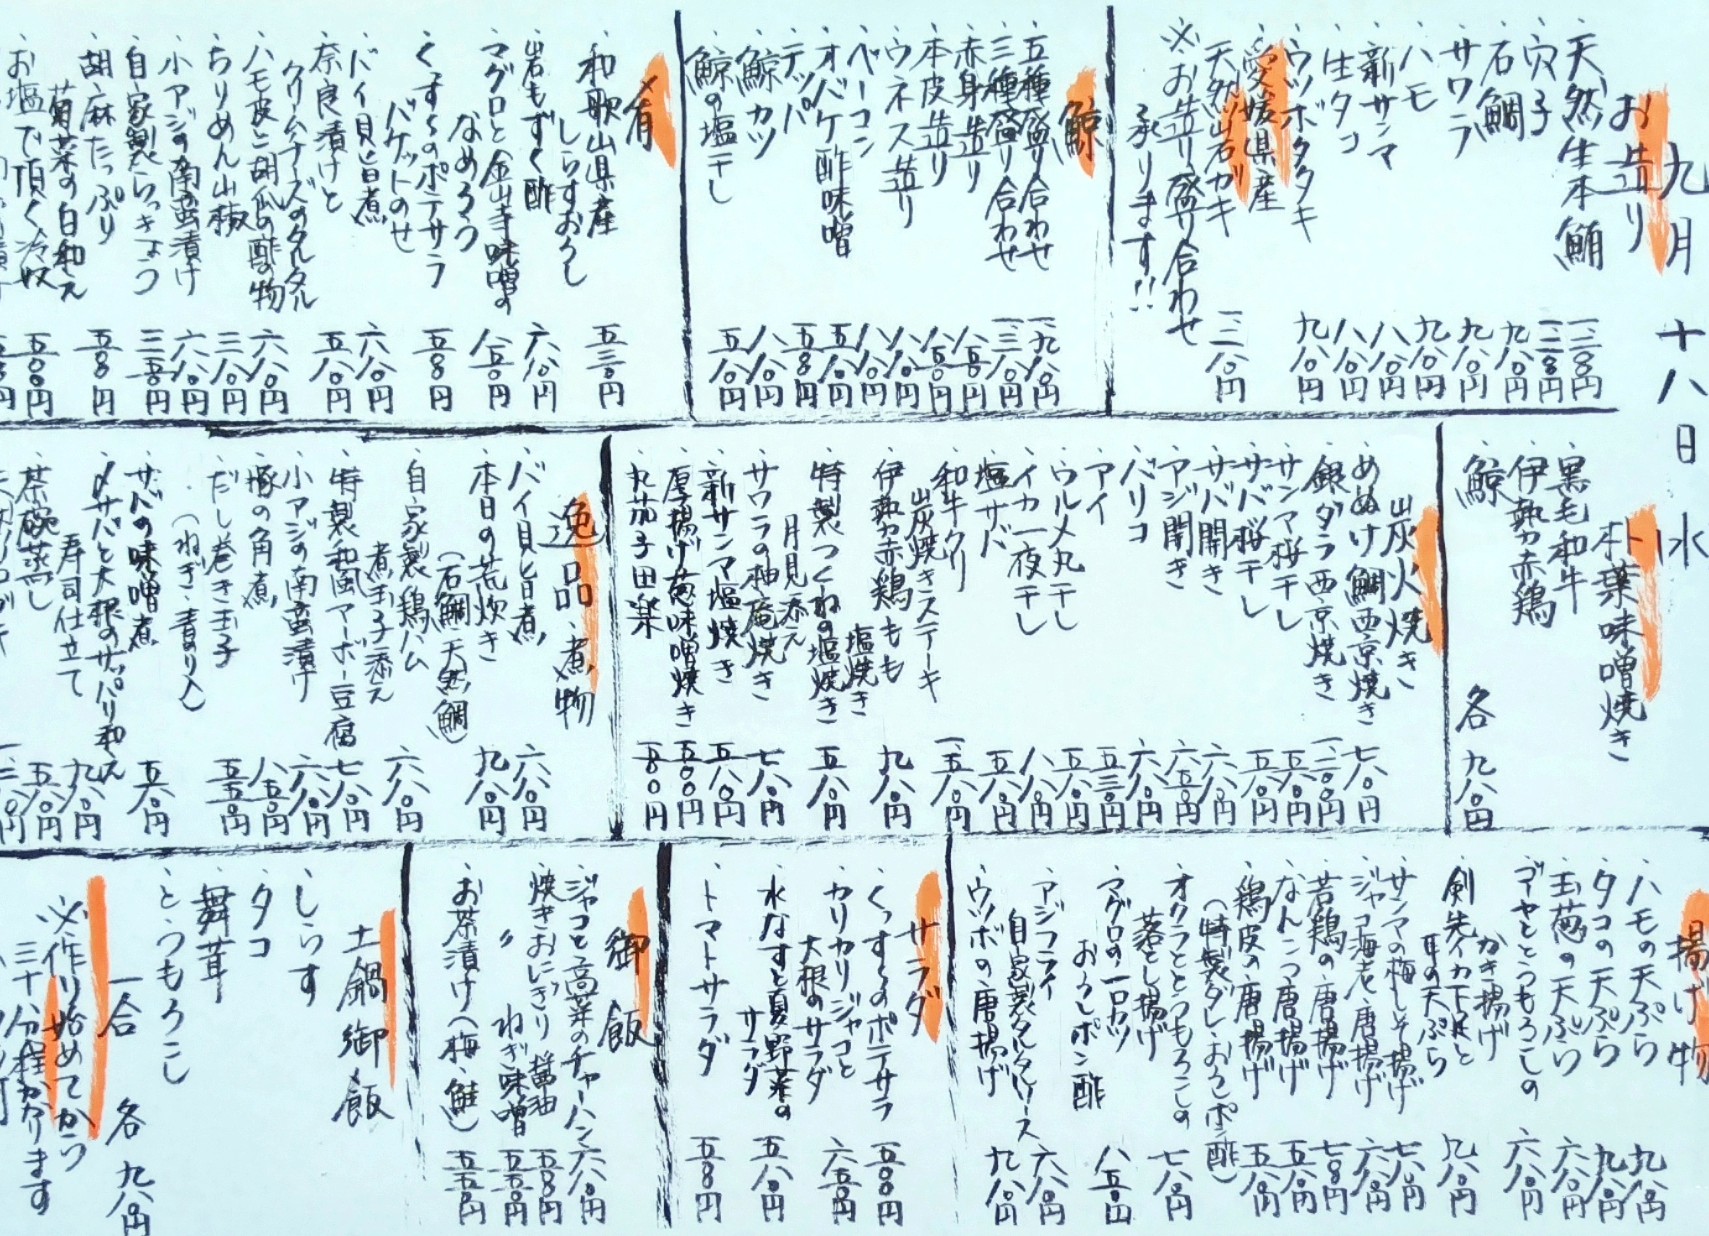 九月十八日水
お造り
・天然生本鮪 一、二八〇円
・穴子 一、二八〇円
・石鯛 九八〇円
・サワラ 九八〇円
・ハモ 九八〇円
・新サンマ 八八〇円
・生タコ 八八〇円
・ウツボタタキ 九八〇円
・愛媛県産
天然岩ガキ 一、二八〇円
※お造り盛り合わせ
承ります!!
鯨
・五種盛り合わせ 一、九八〇円
・三種盛り合わせ 一、三八〇円
・赤身造り 八五〇円
・本皮造り 八五〇円
・ウネス造り 八八〇円
・ベーコン 八八〇円
・オバケ酢味噌 五八〇円
・テッパ 五五〇円
・鯨カツ 八八〇円
・鯨の塩干し 五八〇円
肴
・和歌山県産
しらすおろし 五三〇円
・岩もずく酢 六八〇円
・マグロと金山寺味噌の
なめろう 八五〇円
・くすくすのポテサラ
バケットのせ 五五〇円
・バイ貝旨煮 六八〇円
・奈良漬けと
クリームチーズのタルタル 五八〇円
・ハモ皮と胡瓜の酢の物 六八〇円
・ちりめん山椒 三八〇円
・小アジの南蛮漬け 六八〇円
・自家製らっきょう 三五〇円
・胡麻たっぷり
菊菜の白和え 五五〇円
・お塩で頂く冷奴 五〇〇円
朴葉味噌焼き
・黒毛和牛
・伊勢赤鶏
・鯨
各九八〇円
炭火焼き
・めぬけ鯛西京焼き 七八〇円
・銀ダラ西京焼き 一、二〇〇円
・サンマ桜干し 五八〇円
・サバ桜干し 五八〇円
・サバ開き 六八〇円
・アジ開き 六五〇円
・バリコ 六八〇円
・アイ 五三〇円
・ウルメ丸干し 五八〇円
・イカ一夜干し 八八〇円
・塩サバ 五八〇円
・和牛クリ
炭焼きステーキ 一、五八〇円
・伊勢赤鶏もも
塩焼き 九八〇円
・特製つくねの塩焼き
月見添え 五八〇円
・サワラの柚庵焼き 七八〇円
・新サンマ塩焼き 五八〇円
・厚揚げ葱味噌焼き 五〇〇円
・丸茄子田楽 五八〇円
逸品・煮物
・バイ貝旨煮 六八〇円
・本日の荒炊き
(石鯛・天然鯛) 九八〇円
・自家製鶏ハム
煮玉子添え 六八〇円
・特製和風マーボー豆腐 七八〇円
・小アジの南蛮漬け 六八〇円
・豚の角煮 八五〇円
・だし巻き玉子 五五〇円
(ねぎ・青のり入)
・サバの味噌煮 五八〇円
・〆サバと大根のサッパリ和え
寿司仕立て 九八〇円
・茶碗蒸し 五八〇円
揚げ物
・ハモの天ぷら 九八〇円
・タコの天ぷら 九八〇円
・玉葱の天ぷら 六八〇円
・ゴーヤととうもろこしの
かき揚げ 六八〇円
・剣先イカ下足と
耳の天ぷら 九八〇円
・サンマの梅しそ揚げ 七八〇円
・ジャコ海老唐揚げ 六八〇円
・若鶏の唐揚げ 七八〇円
・なんこつ唐揚げ 五八〇円
・鶏皮の唐揚げ 五八〇円
(特製ダレ・おろしポン酢)
・オクラととうもろこしの
落とし揚げ 七八〇円
・マグロの一口カツ
おろしポン酢 八五〇円
・アジフライ
自家製タルタルソース 六八〇円
・ウツボの唐揚げ 九八〇円
サラダ
・くすくすのポテサラ 五〇〇円
・カリカリジャコと
大根のサラダ 六五〇円
・水なすと夏野菜の
サラダ 五八〇円
・トマトサラダ 五五〇円
御飯
・ジャコと高菜のチャーハン 六八〇円
・焼きおにぎり 醤油 五五〇円
・〃 ねぎ味噌 五五〇円
・お茶漬け(梅・鮭) 五五〇円
土鍋御飯
・しらす
・タコ
・舞茸
・とうもろこし
一合 各九八〇円
※作り始めてから
三十分程かかります